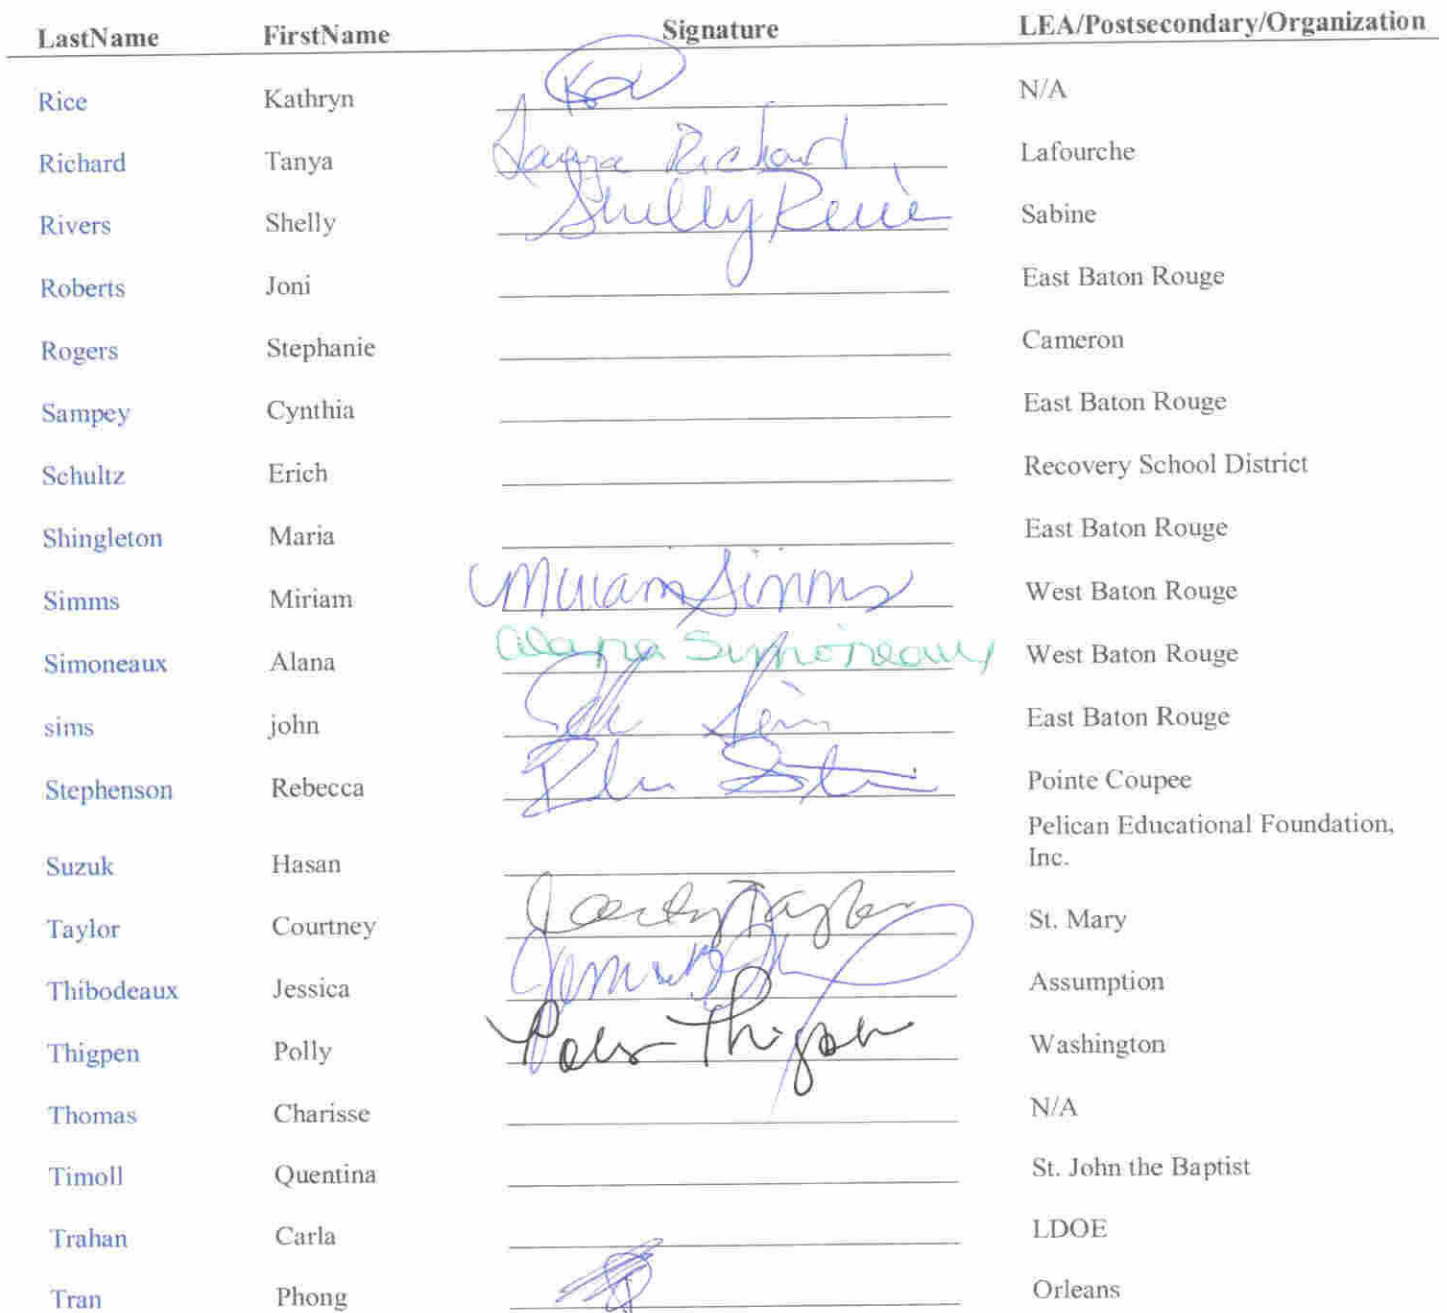 LastName FirstName Signature LEA/Postsecondary/Organization
Rice Kathryn N/A
Richard Tanya Tanya Richard Lafourche
Rivers Shelly Shelly Sabine
Roberts Joni East Baton Rouge
Rogers Stephanie Cameron
Sampey Cynthia East Baton Rouge
Schultz Erich Recovery School District
Shingleton Maria East Baton Rouge
Simms Miriam Miriam Simms West Baton Rouge
Simoneaux Alana Alana Simoneaux West Baton Rouge
sims john East Baton Rouge
Stephenson Rebecca Pointe Coupee
Suzuk Hasan Pelican Educational Foundation,
Inc.
Taylor Courtney Taylor St. Mary
Thibodeaux Jessica Assumption
Thigpen Polly Polly Thigpen Washington
Thomas Charisse N/A
Timoll Quentina St. John the Baptist
Trahan Carla LDOE
Tran Phong Orleans